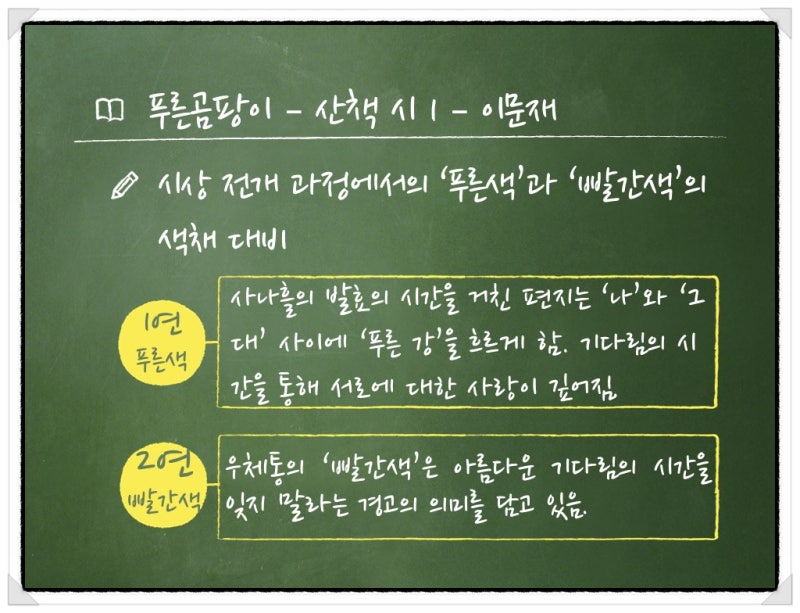 푸른곰팡이 - 산책 시 1 - 이문재
시상 전개 과정에서의 '푸른색'과 '빨간색'의
색채 대비
1연
푸른색
사나흘의 발효의 시간을 거친 편지는 '나'와 '그
대' 사이에 '푸른 강'을 흐르게 함. 기다림의 시
간을 통해 서로에 대한 사랑이 깊어짐
2연
빨간색
우체통의 '빨간색'은 아름다운 기다림의 시간을
잊지 말라는 경고의 의미를 담고 있음.